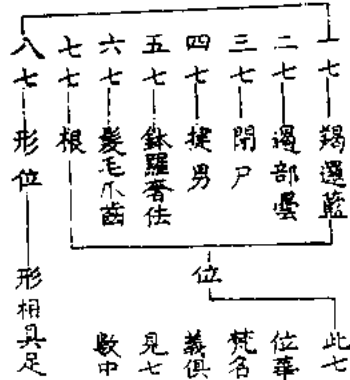 一七 羯邏藍
二七 遏部曇
三七 閉尸
四七 揵男
五七 鉢羅奢佉
六七 髮毛爪齒
七七 根
八七 形位 形相具足
位
此七
位華
梵名
義俱
見七
數中